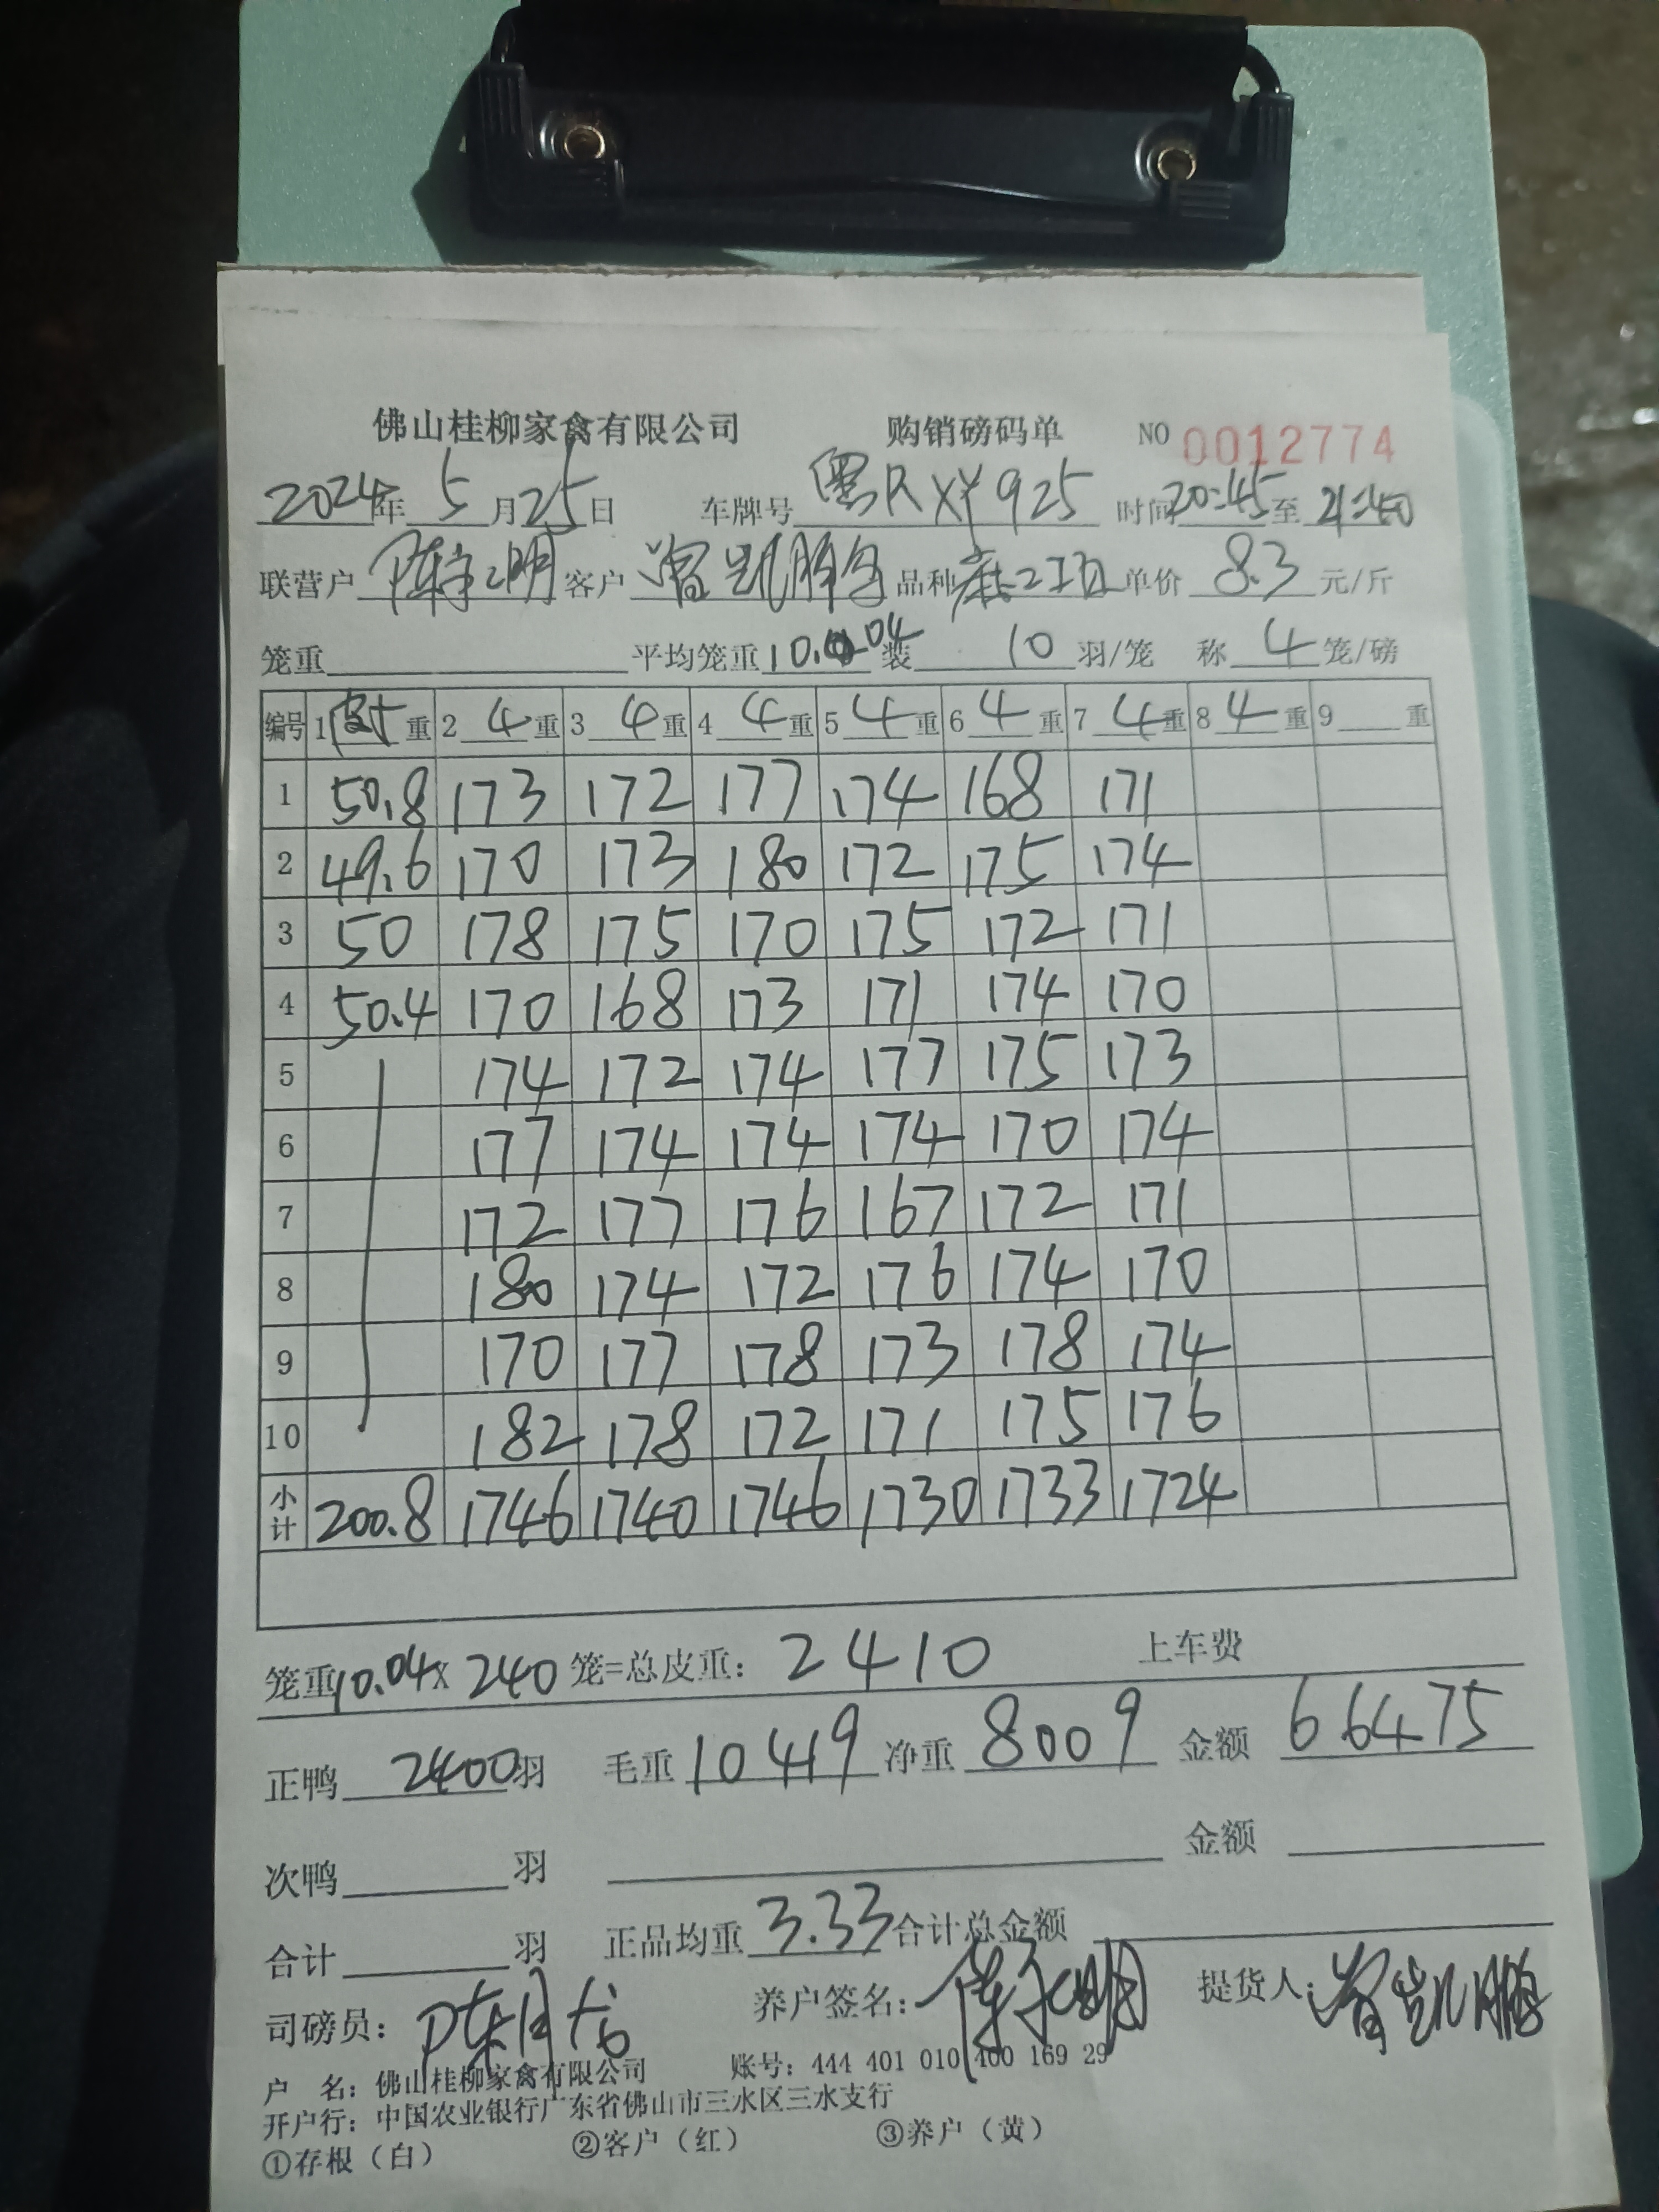 佛山桂柳家禽有限公司 购销磅码单 NO 0012774
2024年 5月25日 车牌号 925 时间20:45至 21:40
联营户 陈 明 客户 凯鹏 品种 单价 8.3 元/斤
笼重 平均笼重10.04 装 10 羽/笼 称 4 笼/磅
编号 1 重 2 4 重 3 4 重 4 4 重 5 4 重 6 4 重 7 4 重 8 4 重 9 重
1 50.8 173 172 177 174 168 171
2 49.6 170 173 180 172 175 174
3 50 178 175 170 175 172 171
4 50.4 170 168 173 171 174 170
5 174 172 174 177 175 173
6 177 174 174 174 170 174
7 172 177 176 167 172 171
8 180 174 172 176 174 170
9 170 177 178 173 178 174
10 182 178 172 171 175 176
小计 200.8 1746 1740 1746 1730 1733 1724
笼重10.04x 240 笼=总皮重: 2410 上车费
正鸭 2400羽 毛重 10419 净重 8009 金额 66475
次鸭 羽 金额
合计 羽 正品均重 3.33 合计总金额
司磅员: 陈 养户签名: 陈 明 提货人: 凯鹏
户 名: 佛山桂柳家禽有限公司 账号: 444 401 010 400 169 29
开户行: 中国农业银行广东省佛山市三水区三水支行
①存根(白) ②客户(红) ③养户(黄)